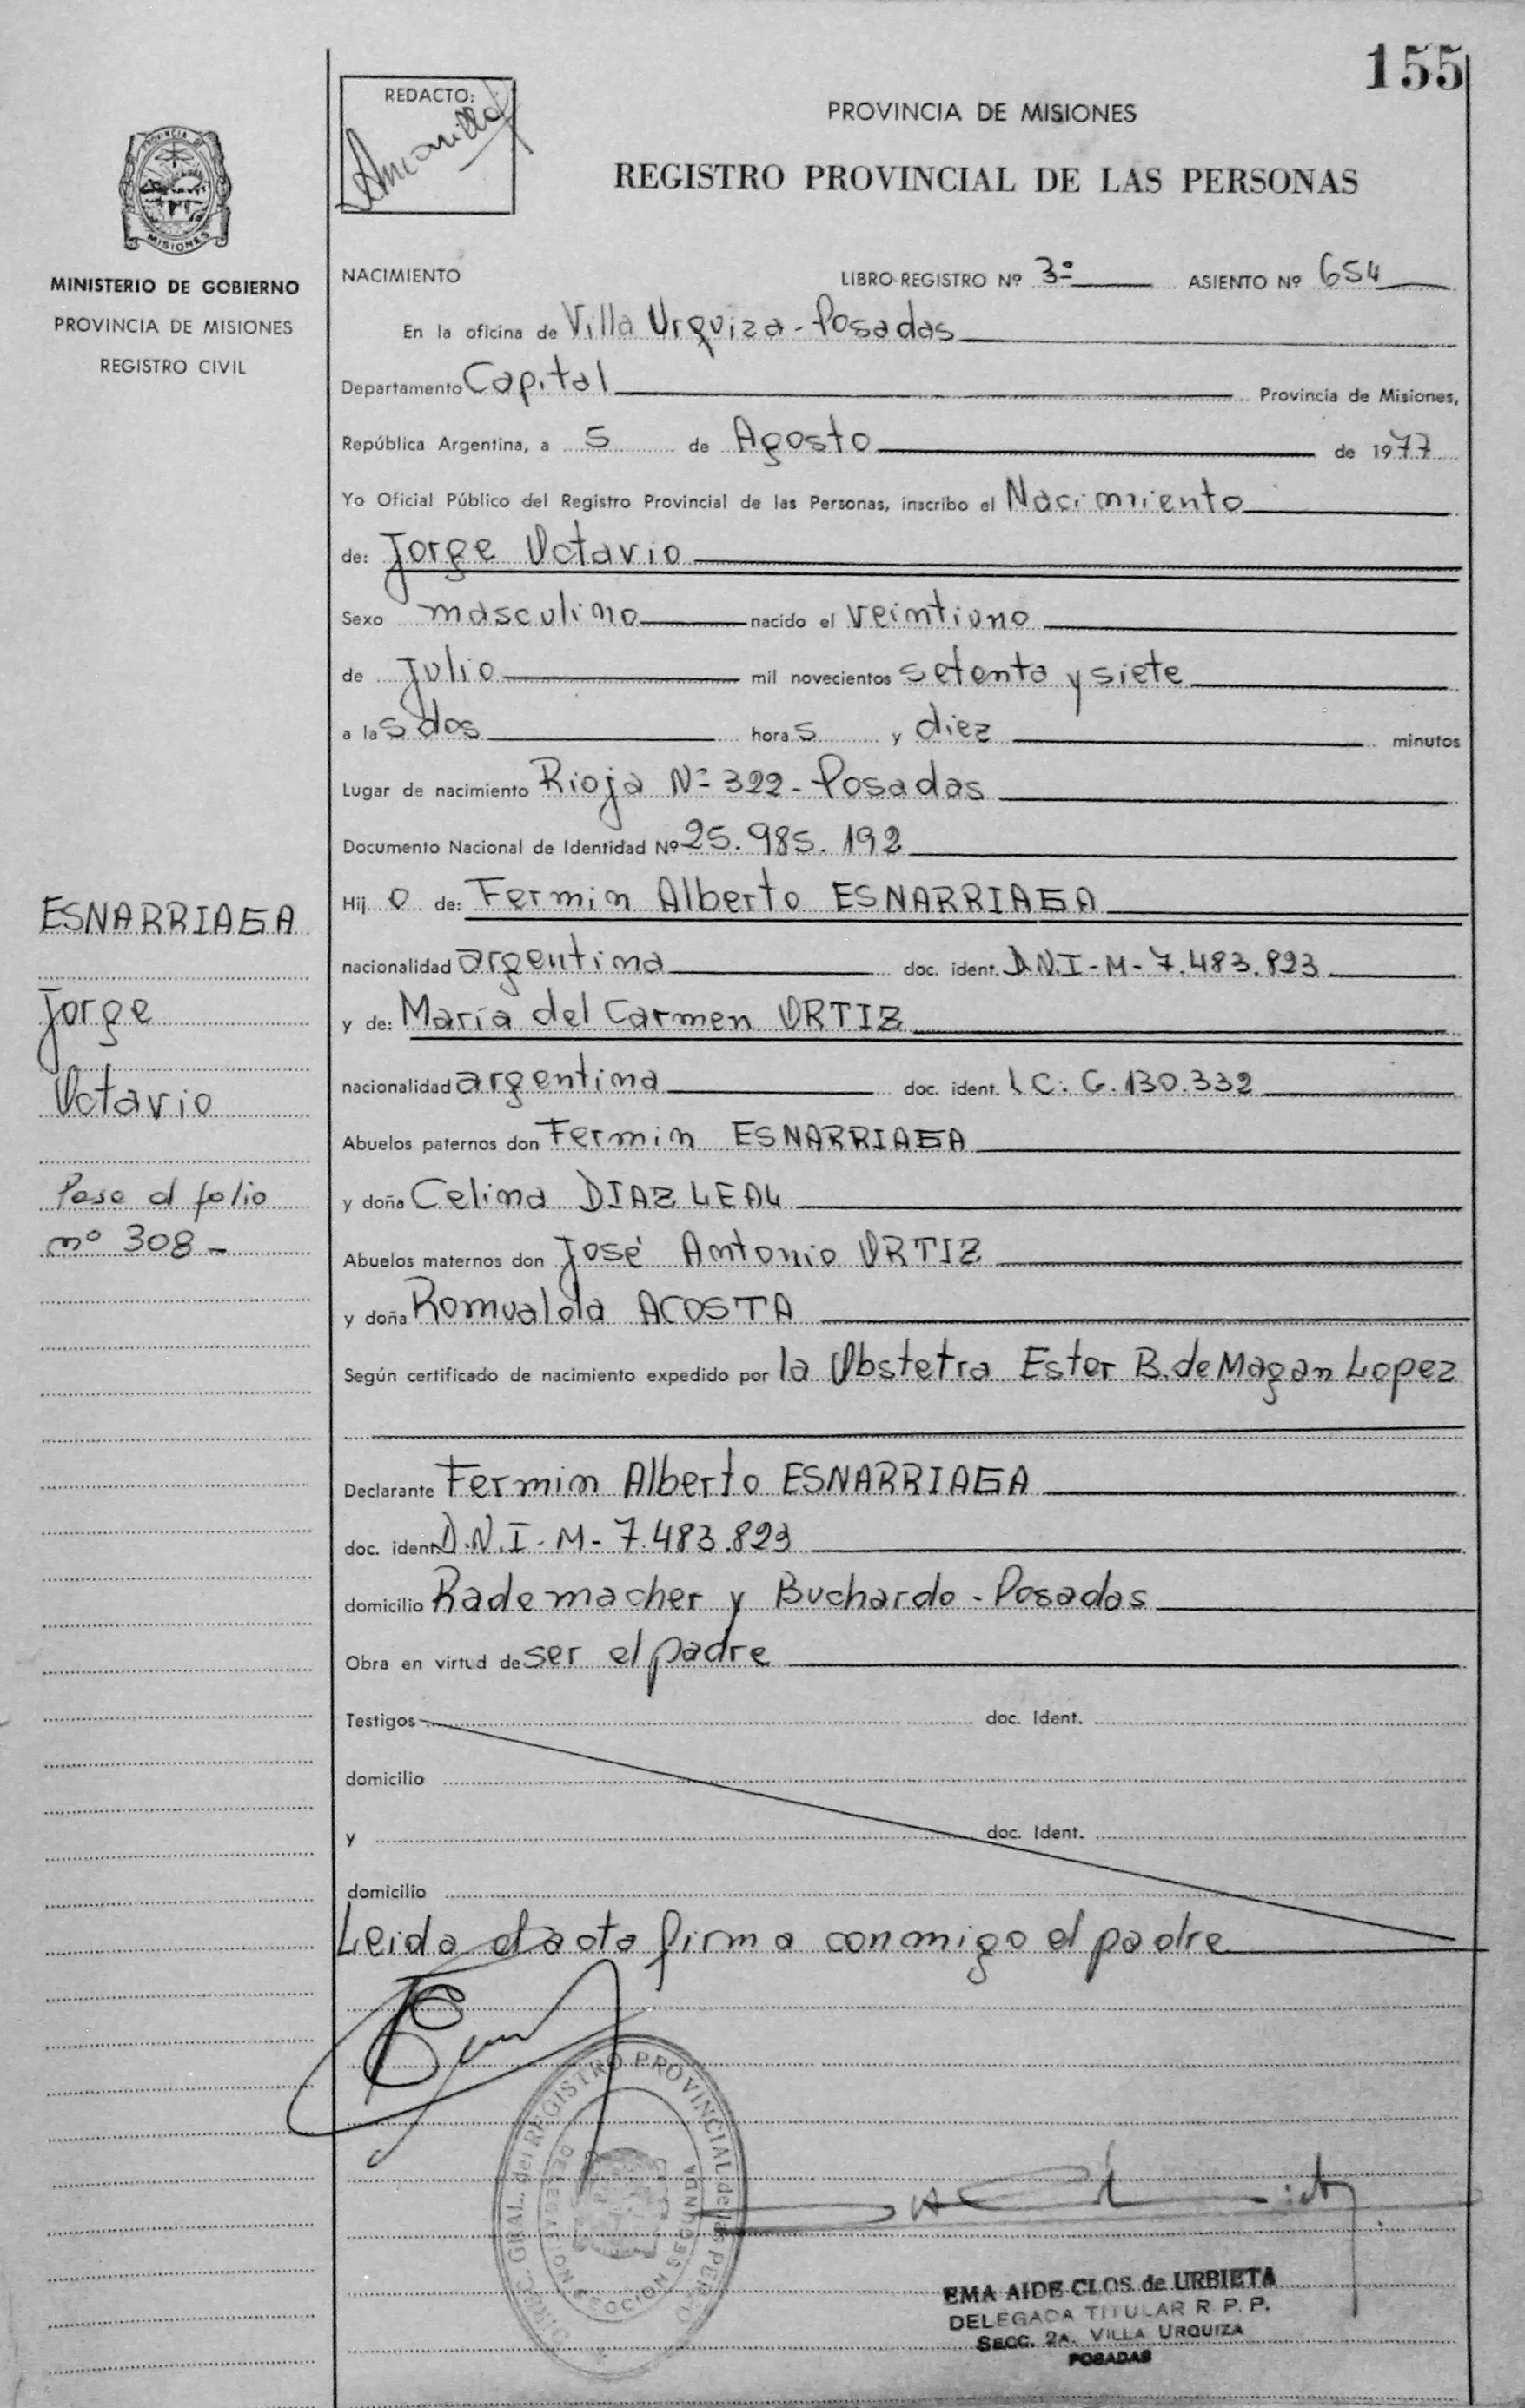 155
REDACTO:
PROVINCIA DE MISIONES
REGISTRO PROVINCIAL DE LAS PERSONAS
MISIONES
MINISTERIO DE GOBIERNO
PROVINCIA DE MISIONES
REGISTRO CIVIL
NACIMIENTO LIBRO-REGISTRO Nº 3º ASIENTO Nº 654
En la oficina de Villa Urquiza - Posadas
Departamento Capital Provincia de Misiones,
República Argentina, a 5 de Agosto de 1977
Yo Oficial Público del Registro Provincial de las Personas, inscribo el Nacimiento
de: Jorge Octavio
Sexo masculino nacido el veintiuno
de Julio mil novecientos setenta y siete
a las dos horas y diez minutos
Lugar de nacimiento Rioja Nº 322 - Posadas
Documento Nacional de Identidad Nº 25.985.192
Hijo de: Fermin Alberto ESNARRIAGA
nacionalidad argentina doc. ident. D.N.I - M - 7.483.823
y de: María del Carmen ORTIZ
nacionalidad argentina doc. ident. L.C: 6.130.332
Abuelos paternos don Fermin ESNARRIAGA
y doña Celina DIAZ LEAL
Abuelos maternos don José Antonio ORTIZ
y doña Romualda ACOSTA
Según certificado de nacimiento expedido por la Obstetra Ester B. de Magan Lopez
Declarante Fermin Alberto ESNARRIAGA
doc. ident. D.N.I - M - 7.483.823
domicilio Rademacher y Buchardo - Posadas
Obra en virtud de ser el padre
Testigos doc. Ident.
domicilio
y doc. Ident.
domicilio
Leida el acta firma conmigo el padre
ESNARRIAGA
Jorge
Octavio
Pase al folio
nº 308 -
GRAL. del REGISTRO PROVINCIAL de las
SEGUNDA
EMA AIDE CLOS de URBIETA
DELEGADA TITULAR R. P. P.
SECC. 2A. VILLA URQUIZA
POSADAS